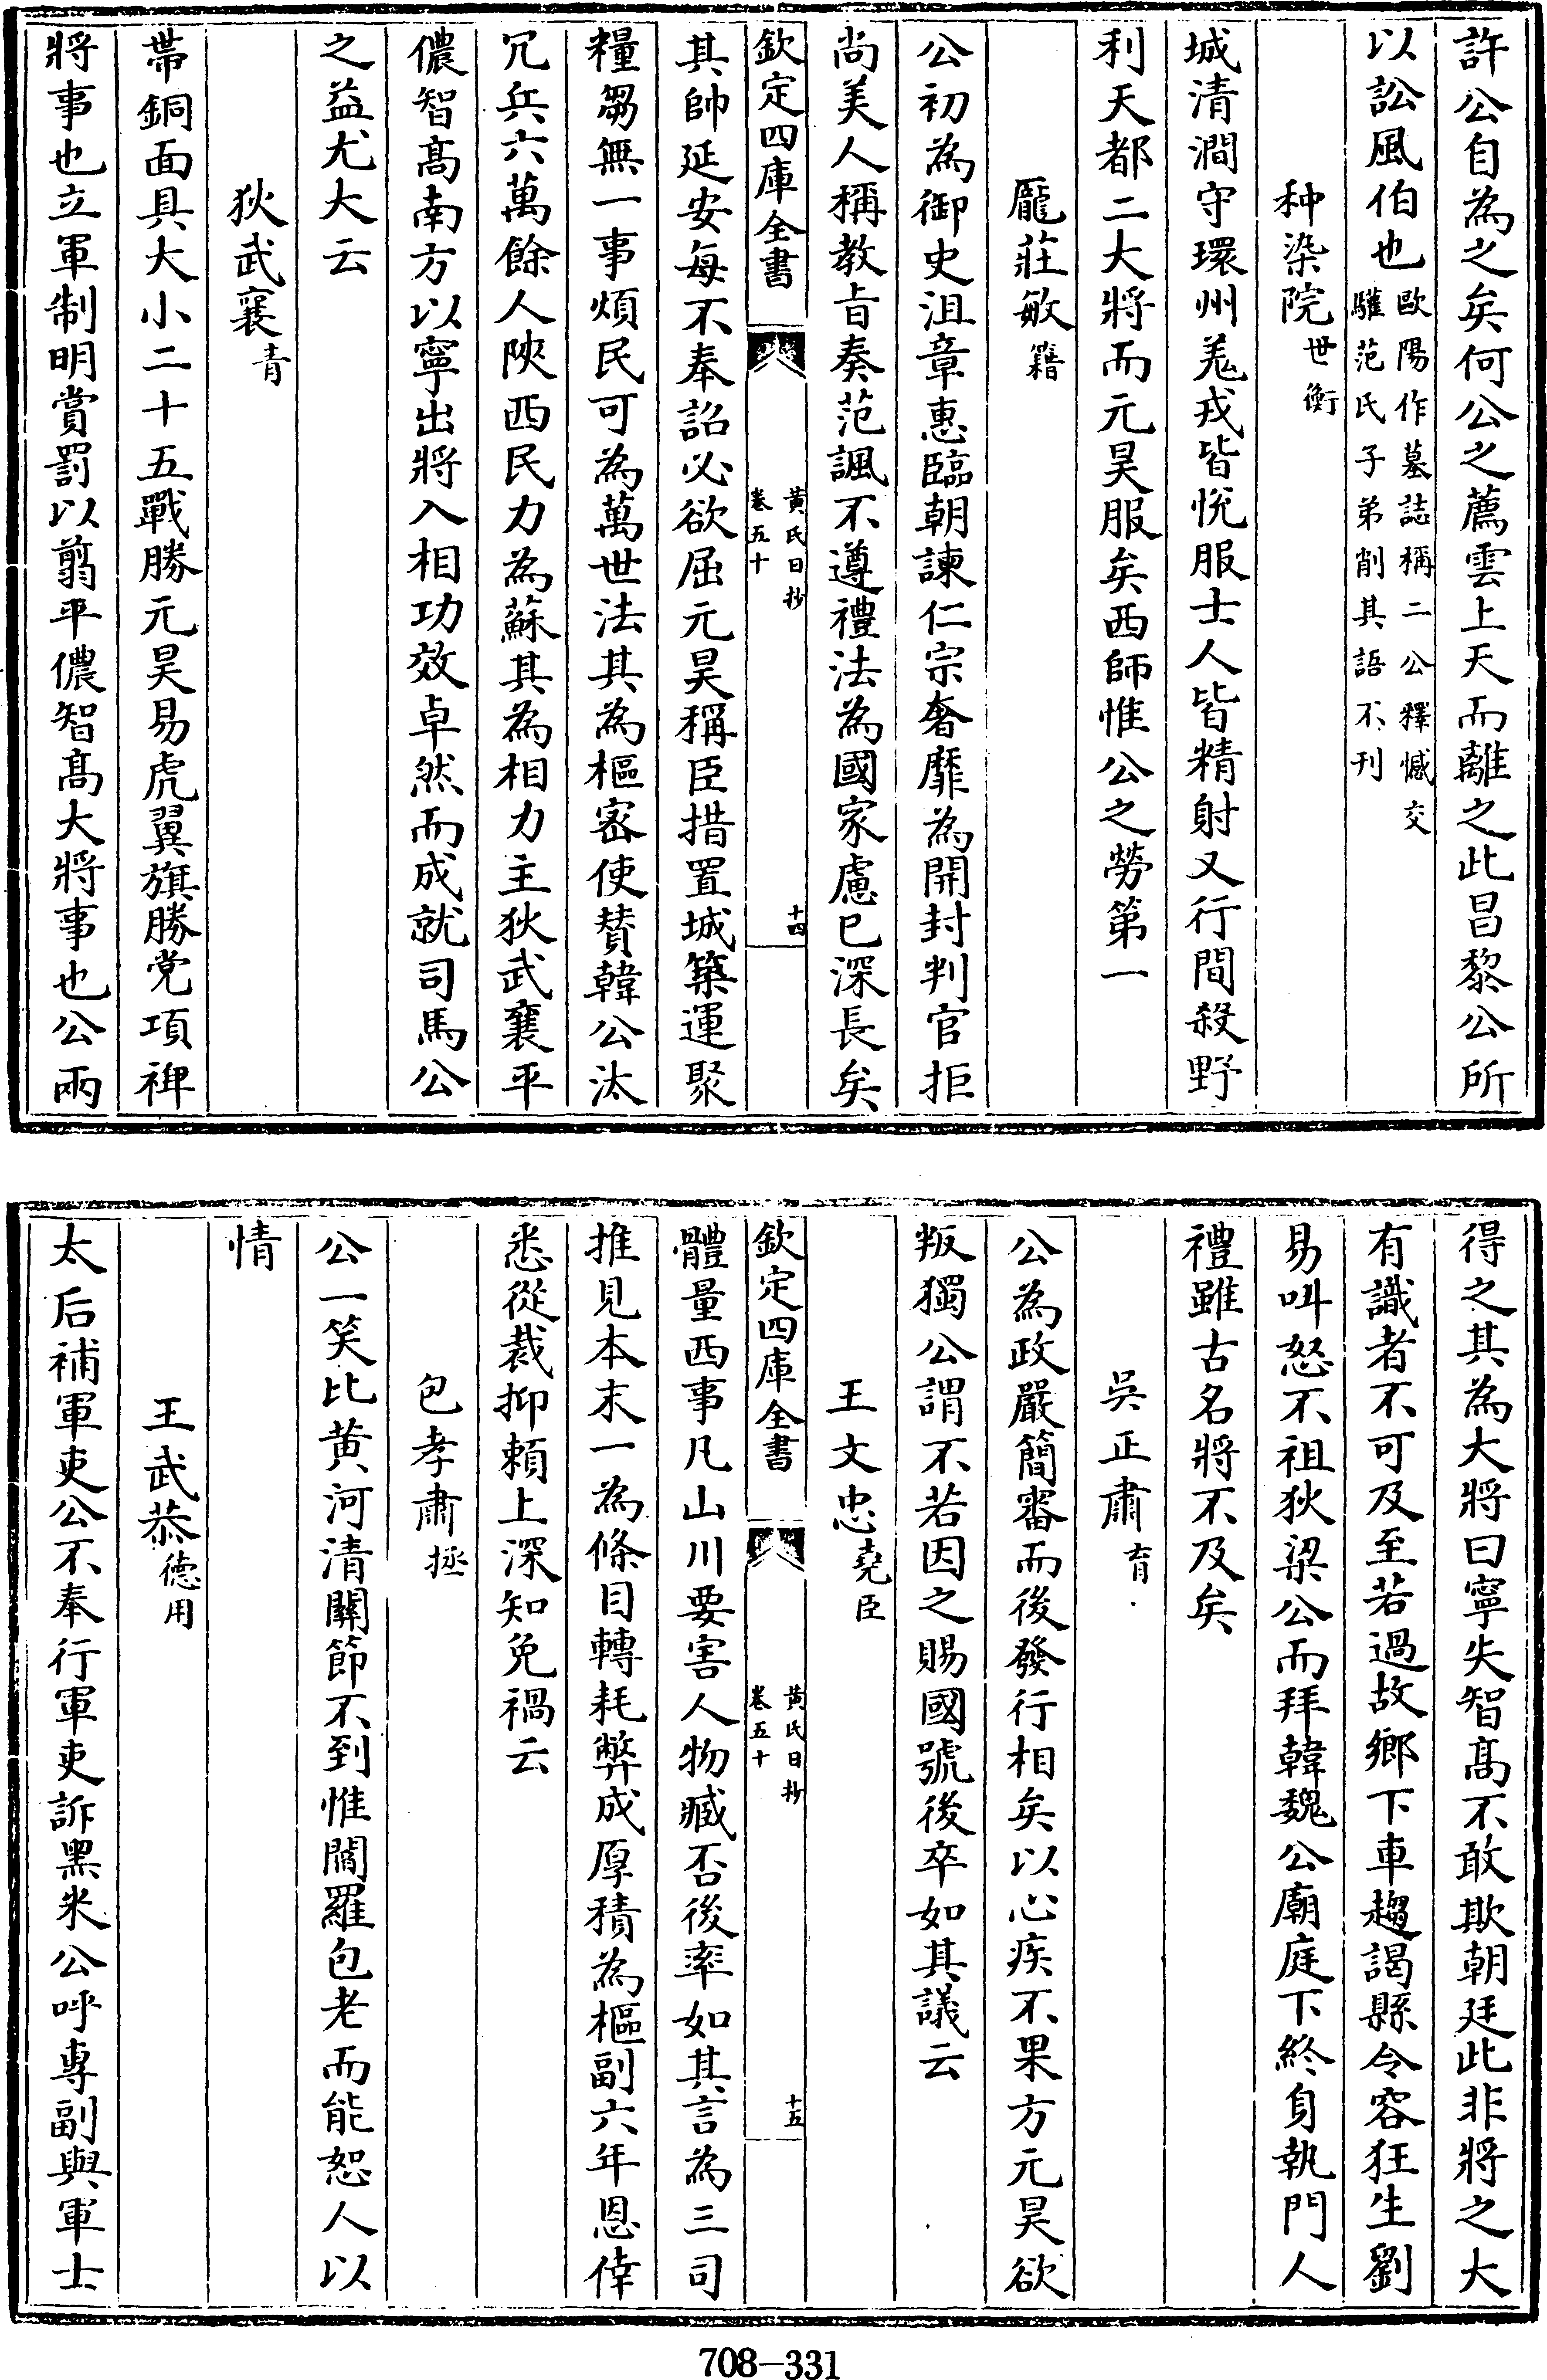 許公自為之矣何公之薦雲上天而離之此昌黎公所
以訟風伯也歐陽作墓誌稱二公釋憾交驩范氏子弟削其語不刊
种染院世衡
城清澗守環州羌戎皆悅服士人皆精射又行間殺野
利天都二大將而元昊服矣西師惟公之勞第一
龐莊敏籍
公初為御史沮章惠臨朝諫仁宗奢靡為開封判官拒
尚美人稱教旨奏范諷不遵禮法為國家慮已深長矣
欽定四庫全書
黄氏日抄
卷五十
十四
其帥延安每不奉詔必欲屈元昊稱臣措置城築運聚
糧芻無一事煩民可為萬世法其為樞密使賛韓公汰
冗兵六萬餘人陜西民力為蘇其為相力主狄武襄平
儂智髙南方以寧出將入相功效卓然而成就司馬公
之益尤大云
狄武襄青
帶銅面具大小二十五戰勝元昊易虎翼旗勝党項裨
將事也立軍制明賞罰以翦平儂智髙大將事也公兩
得之其為大將曰寧失智髙不敢欺朝廷此非將之大
有識者不可及至若過故鄉下車趨謁縣令容狂生劉
易呌怒不祖狄梁公而拜韓魏公廟庭下終身執門人
禮雖古名將不及矣
吳正肅育
公為政嚴簡審而後發行相矣以心疾不果方元昊欲
叛獨公謂不若因之賜國號後卒如其議云
王文忠堯臣
欽定四庫全書
黄氏日抄
卷五十
十五
體量西事凡山川要害人物臧否後率如其言為三司
推見本末一為條目轉耗弊成厚積為樞副六年恩倖
悉從裁抑賴上深知免禍云
包孝肅拯
公一笑比黄河清關節不到惟閻羅包老而能恕人以
情
王武恭德用
太后補軍吏公不奉行軍吏訴黑米公呼專副與軍士
708-331